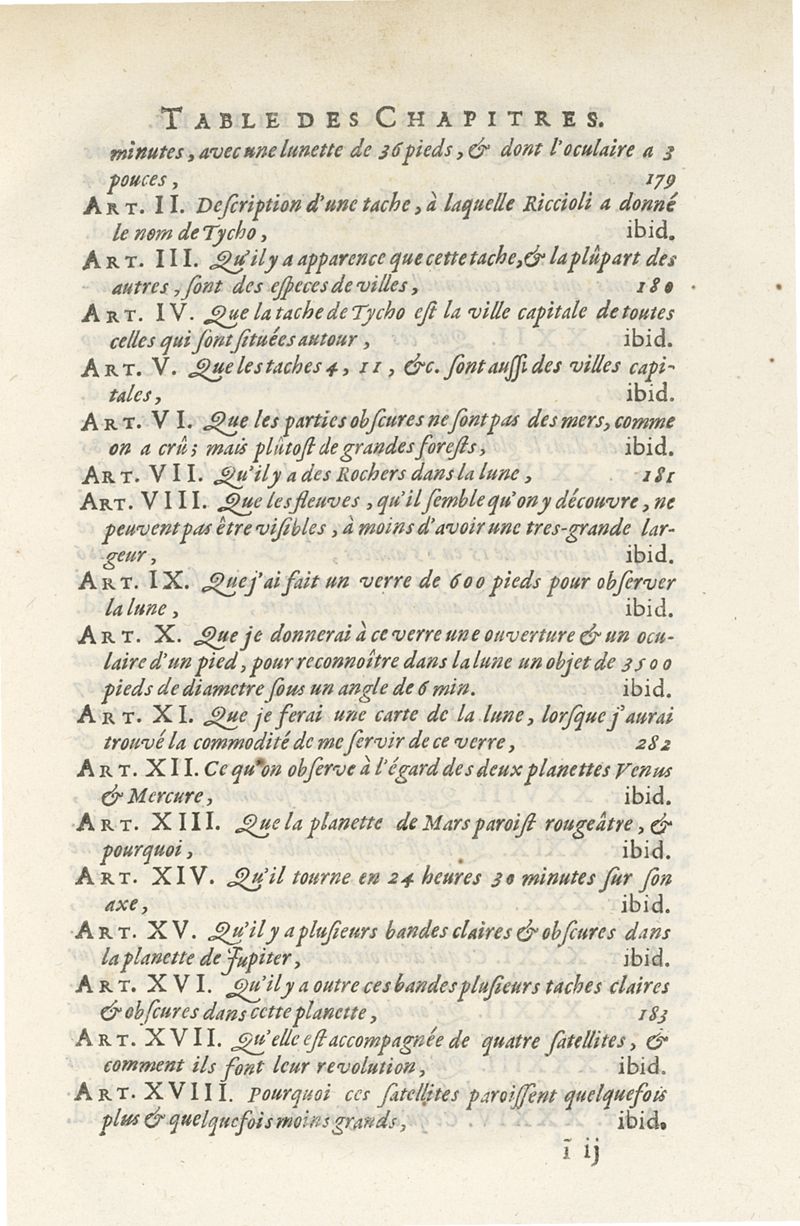 TABLE DES CHAPITRES.
minutes, avec une lunette de 36 pieds, & dont l'oculaire a 3
pouces, 179
ART. II. Deſcription d'une tache, à laquelle Riccioli a donné
le nom de Tycho, ibid.
ART. III. Qu'il y a apparence que cette tache, & la plûpart des
autres, ſont des eſpeces de villes, 180
ART. IV. Que la tache de Tycho eſt la ville capitale de toutes
celles qui ſont ſituées autour, ibid.
ART. V. Que les taches 4, 11, &c. ſont auſſi des villes capi-
tales, ibid.
ART. VI. Que les parties obſcures ne ſont pas des mers, comme
on a crû; mais plûtoſt de grandes foreſts, ibid.
ART. VII. Qu'il y a des Rochers dans la lune, 181
ART. VIII. Que les fleuves, qu'il ſemble qu'on y découvre, ne
peuvent pas être viſibles, à moins d'avoir une tres-grande lar-
geur, ibid.
ART. IX. Que j'ai fait un verre de 600 pieds pour obſerver
la lune, ibid.
ART. X. Que je donnerai à ce verre une ouverture & un ocu-
laire d'un pied, pour reconnoître dans la lune un objet de 3500
pieds de diametre ſous un angle de 6 min. ibid.
ART. XI. Que je ferai une carte de la lune, lorſque j'aurai
trouvé la commodité de me ſervir de ce verre, 282
ART. XII. Ce qu'on obſerve à l'égard des deux planettes Venus
& Mercure, ibid.
ART. XIII. Que la planette de Mars paroiſt rougeâtre, &
pourquoi, ibid.
ART. XIV. Qu'il tourne en 24 heures 30 minutes ſur ſon
axe, ibid.
ART. XV. Qu'il y a pluſieurs bandes claires & obſcures dans
la planette de Jupiter, ibid.
ART. XVI. Qu'il y a outre ces bandes pluſieurs taches claires
& obſcures dans cette planette, 183
ART. XVII. Qu'elle eſt accompagnée de quatre ſatellites, &
comment ils font leur revolution, ibid.
ART. XVIII. Pourquoi ces ſatellites paroiſſent quelquefois
plus & quelquefois moins grands, ibid.
ĩ ij